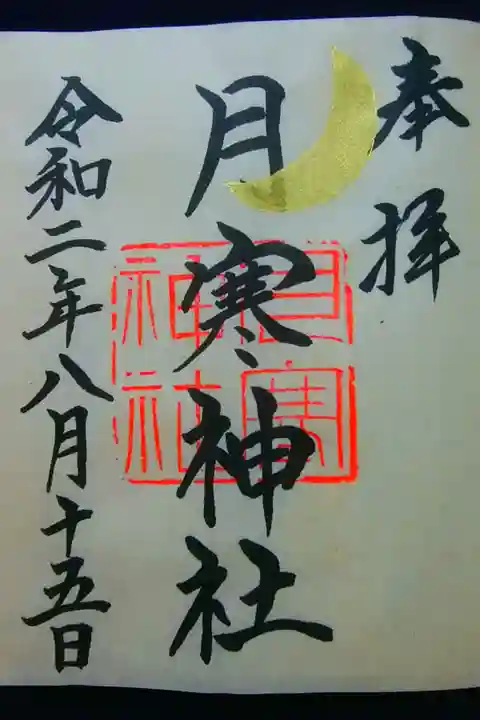 奉拝
月寒神社
月寒
神社
令和二年八月十五日